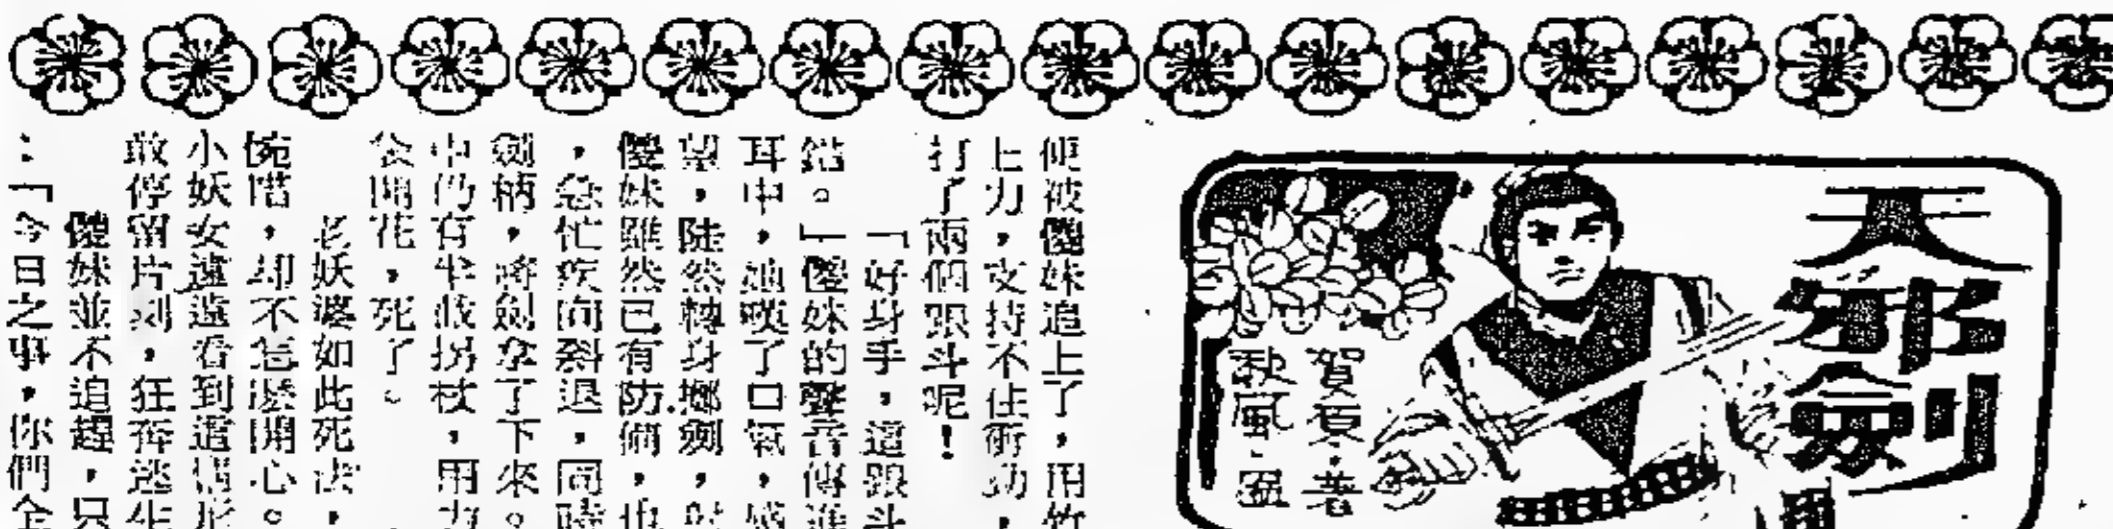 天邪劍
賀夏·著
秋風·圖
便被傻妹追上了，用竹
上力，支持不住衝勁，
打了兩個跟斗呢！
「好身手，這跟斗
錯。」傻妹的聲音傳進
耳中，她嘆了口氣，
望，陡然轉身擲劍，
傻妹雖然已有防備，也
，急忙疾向斜退，同時
劍柄，將劍拿了下來。
中仍有半截拐杖，用力
公開花，死了。
老妖婆如此死法，
惋惜，却不怎麼開心。
小妖女遠遠看到這情形
敢停留片刻，狂奔逃生
傻妹並不追趕，只
：「今日之事，你們全